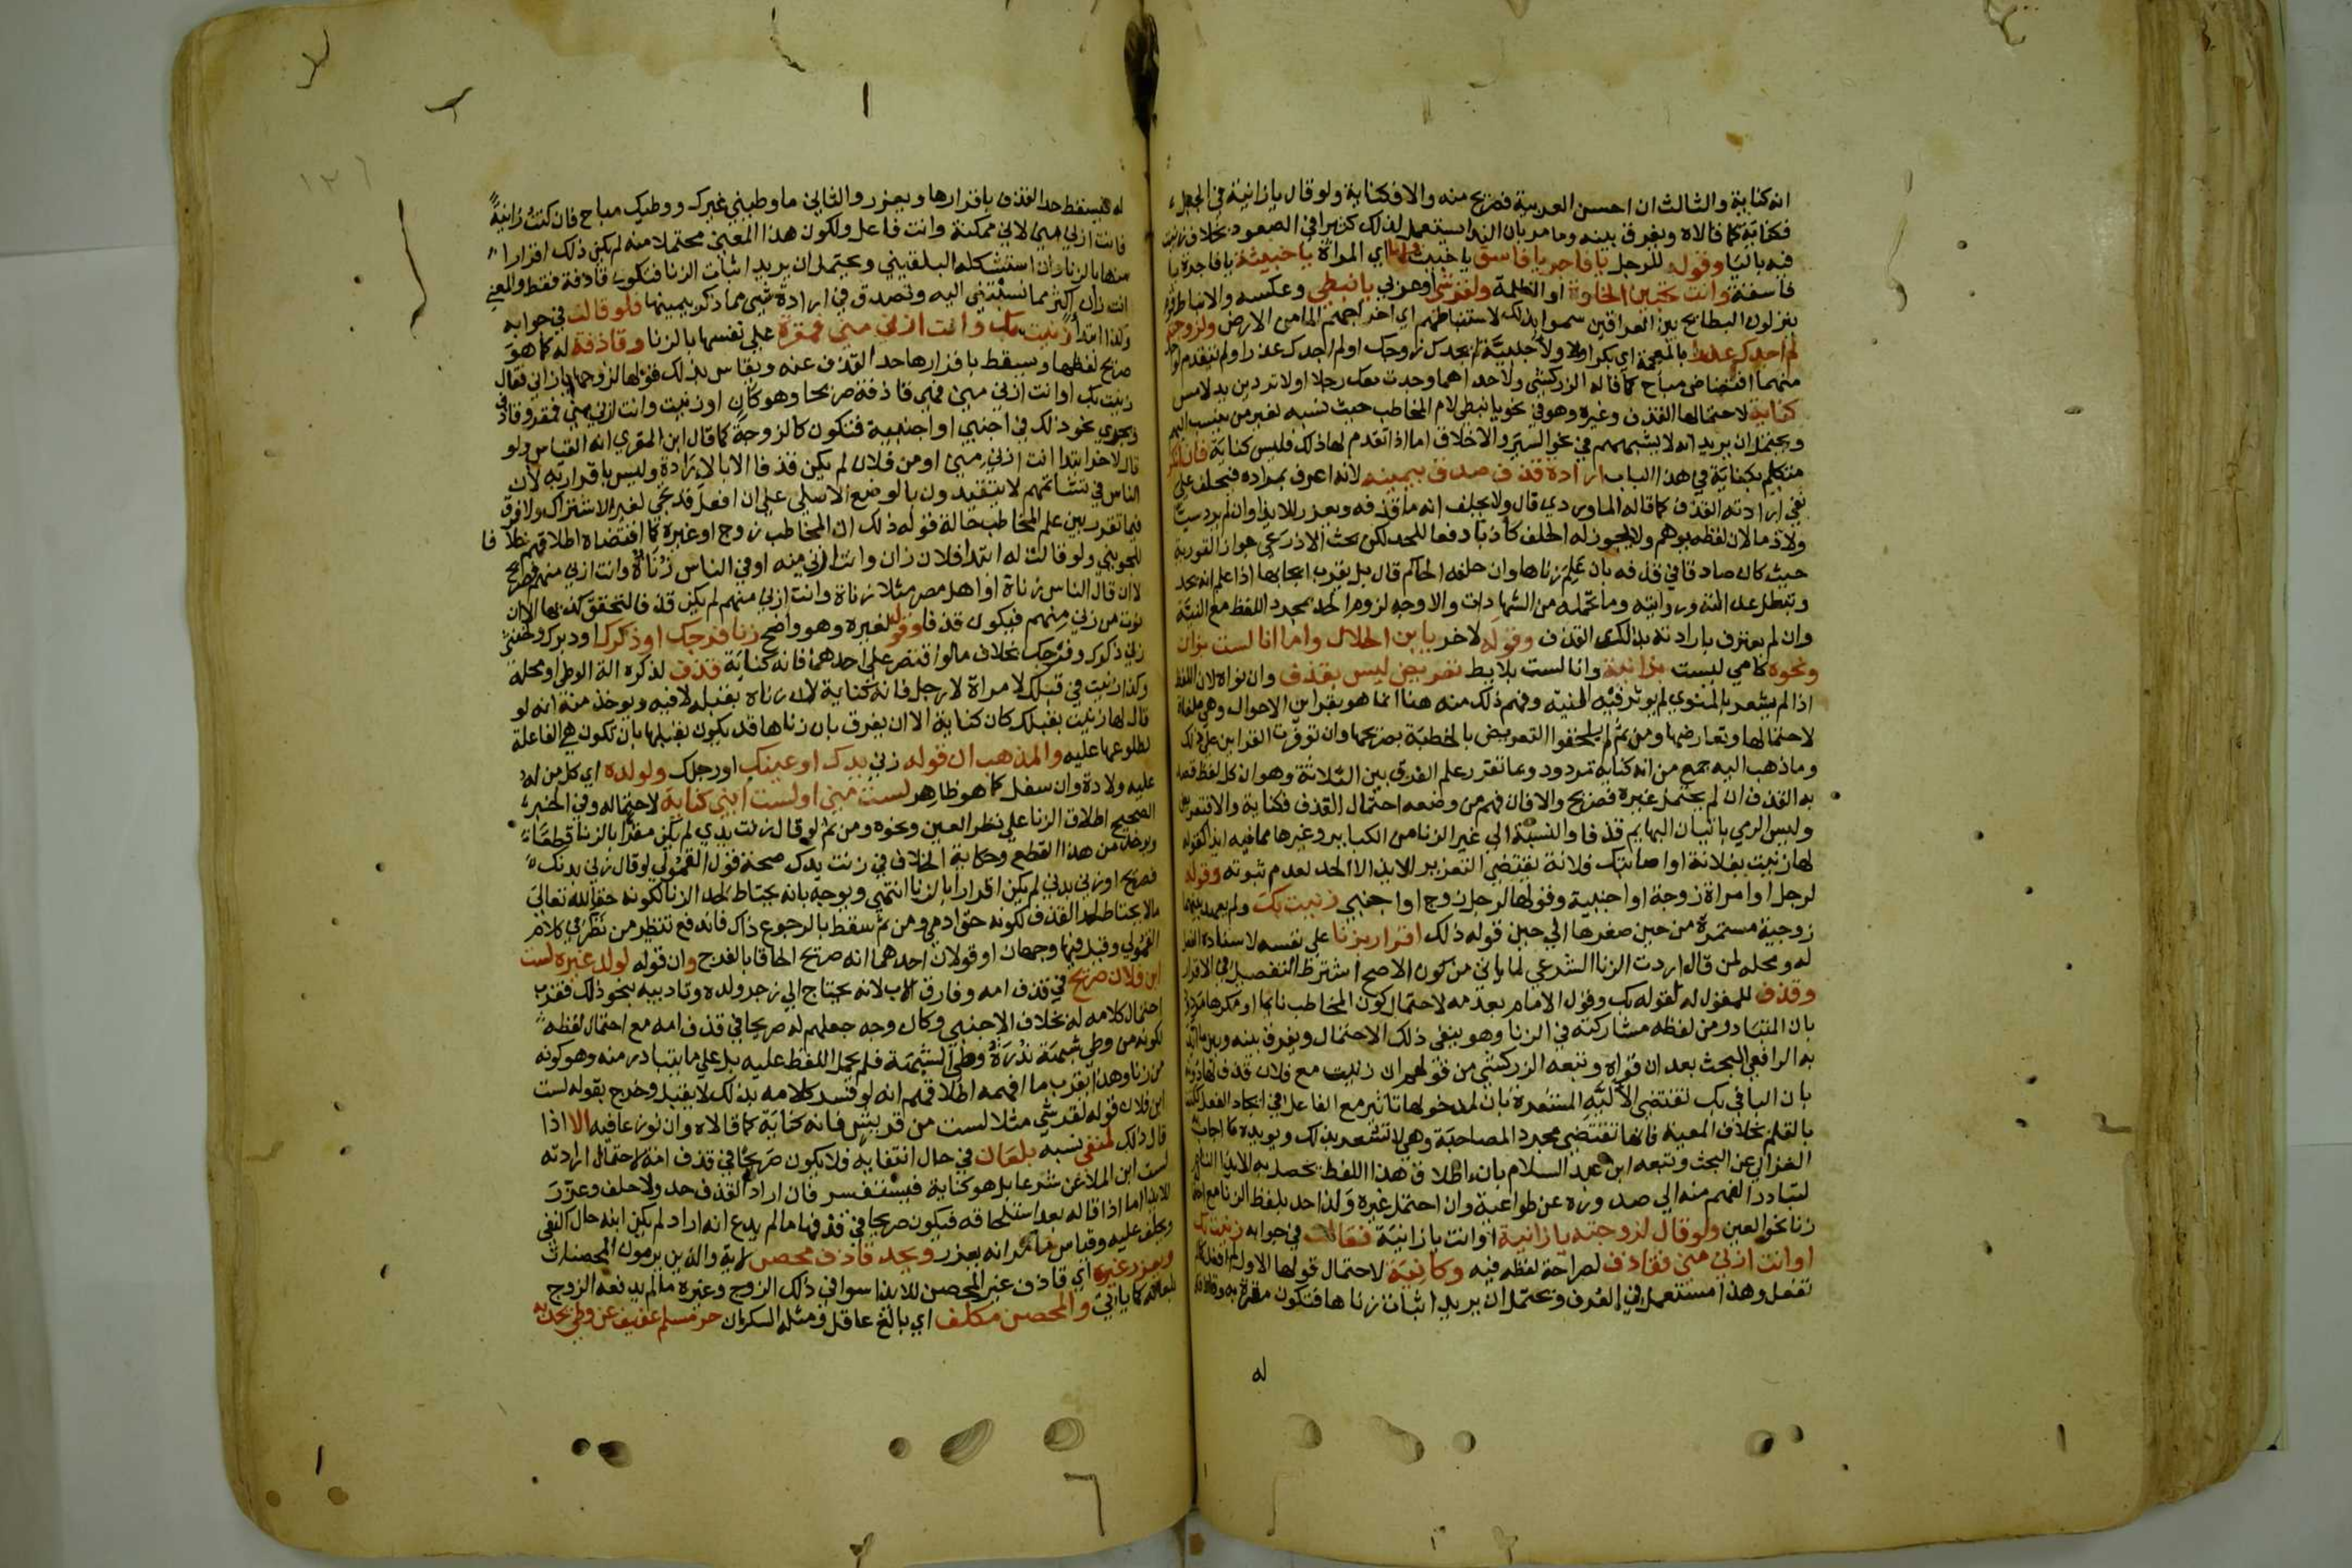 انه كناية والثالث ان احسن العربية فصريح منه والا فكناية ولو قال يا زانية في الجبل
فكناية كما قالاه ويفرق بينه وما مر بان الندا يستعمل لذلك كثيرا في الصعود بخلاف زنيت
فيه باليا وقوله للرجل يا فاجر يا فاسق يا خبيث ولها اي المراة يا خبيثة يا فاجرة يا
فاسقة وانت تحبين الخلوة او الظلمة ولقرشي او عربي يا نبطي وعكسه والانباط قوم
ينزلون البطايح بين العراقين سموا بذلك لاستنباطهم اي اخراجهم الما من الارض ولزوجته
لم اجدك عذراء بالمعجمة اي بكرا ولاجنبية لم يجدك زوجك او لم اجدك عذرا ولم يتقدم لواحدة
منهما افتضاض مباح كما قاله الزركشي ولاحداهما وجدت معك رجلا او لا تردين يد لامس
كناية لاحتمالها القذف وغيره وهو في نحو يا نبطي لام المخاطب حيث نسبه لغير من ينسب اليهم
ويحتمل ان يريد انه لا يشبههم في نحو السير والاخلاق اما اذا تقدم لها ذلك فليس كناية فان انكر
متكلم بكناية في هذا الباب ارادة قذف صدق بيمينه لانه اعرف بمراده فيحلف على
نفي ارادته القذف كما قاله الماوردي قال ولا يحلف انه ما قذفه ويعزر للايذا وان لم يرد سبا
ولا ذما لان لفظه يوهم ولا يجوز له الحلف كاذبا دفعا للحد لكن بحث الاذرعي جواز التورية
حيث كان صادقا في قذفه بان علم زناها وان حلفه الحاكم قال بل يقرب ايجابها اذا علم انه يحد
وتبطل عدالته وروايته وما تحمله من الشهادات والاوجه لزوم الحد بمجرد اللفظ مع النية
وان لم يعترف بارادته بذلك القذف وقوله لاخر يا ابن الحلال واما انا لست بزان
ونحوه كامي ليست بزانية وانا لست بلايط تعريض ليس بقذف وان نواه لان اللفظ
اذا لم يشعر بالمنوي لم يوثر فيه النية وفهم ذلك منه هنا انما هو بقراين الاحوال وهي ملغاة
لاحتمالها وتعارضها ومن ثم لم يلحقوا التعريض بالخطبة بصريحها وان توفرت القراين على ذلك
وما ذهب اليه جمع من انه كناية مردود وبما تقرر علم الفرق بين الثلاثة وهو ان كل لفظ قصد
به القذف ان لم يحتمل غيره فصريح والا فان فهم من وضعه احتمال القذف فكناية والا فتعريض
وليس الرمي باتيان البهايم قذفا والنسبة الى غير الزنا من الكباير وغيرها مما فيه ايذا كقوله
لها زنيت بفلانة او اصابتك فلانة يقتضي التعزير للايذا لا الحد لعدم ثبوته وقوله
لرجل او امراة زوجة او اجنبية وقولها لرجل زوج او اجنبي زنيت بك ولم يعهد بينهما
زوجية مستمرة من حين صغرها الى حين قوله ذلك اقرار بزنا على نفسه لاسناده الفعل
له ومحله لمن قال اردت الزنا الشرعي لما ياتي من كون الاصح اشترط التفصيل في الاقرار
وقذف للمقول له لقوله بك وقول الامام بعدمه لاحتمال كون المخاطب نايما او مكرها مردود
بان المتبادر من لفظه مشاركته في الزنا وهو ينفي ذلك الاحتمال ويفرق بينه وبين ما ايد
به الرافعي البحث بعد ان قواه وتبعه الزركشي من قولهم ان زنيت مع فلان قذف لها دونه
بان البا في بك تقتضي الآلية المشعرة بان لمدخولها تاثير مع الفاعل في ايجاد الفعل ككتبت
بالقلم بخلاف المعية فانها تقتضي مجرد المصاحبة وهي لا تشعر بذلك ويويده ما اجاب
الغزالي عن البحث وتبعه ابن عبد السلام بان اطلاق هذا اللفظ يحصل به الايذا التام
لتبادر الفهم منه الى صدوره عن طواعية وان احتمل غيره ولذا حد بلفظ الزنا مع احتمال
زنا نحو العين ولو قال لزوجته يا زانية او انت يا زانية فقالت في جوابه زنيت بك
او انت ازنى مني فقاذف لصراحة لفظه فيه وكانية لاحتمال قولها الاول لم افعل كما لم
تفعل وهذا مستعمل في العرف ويحتمل ان يريد اثبات زناها فتكون مقرة به وقاذفة
له
له فيسقط حد القذف باقرارها ويعزر والثاني ما وطيني غيرك ووطيك مباح فان كنت زانية
فانت ازنى مني لاني ممكنة وانت فاعل ولكون هذا المعنى محتملا منه لم يكن ذلك اقرارا
منها بالزنا وان استشكله البلقيني ويحتمل ان يريد اثبات الزنا فتكون قاذفة فقط والمعنى
انت زان اكثر مما نسبتني اليه وتصدق في ارادة شي مما ذكر بيمينها فلو قالت في جوابه
وكذا ابتدا زنيت بك وانت ازنى مني فمقرة على نفسها بالزنا وقاذفة له كما هو
صريح لفظها ويسقط باقرارها حد القذف عنه ويقاس بذلك قولها لزوجها يا زاني فقال
زنيت بك او انت ازنى مني فهي قاذفة صريحا وهو كان او زنيت وانت ازنى مني فمقر وقاذف
ويجري نحو ذلك في اجنبي او اجنبية فتكون كالزوجة كما قال ابن المقري انه القياس ولو
قال لاخر ابتدا انت ازنى مني او من فلان لم يكن قذفا الا بالارادة وليس باقرار به لان
الناس في تشاتمهم لا يتقيدون بالوضع الاصلي على ان افعل قد تجي لغير الاشتراك ولا فرق
فيما تقرر بين علم المخاطب حالة قوله ذلك ان المخاطب زوج او غيره كما اقتضاه اطلاقهم خلافا
للجويني ولو قالت له ابتدا فلان زان وانت ازنى منه او في الناس زناة وانت ازنى منهم فصريح
لا ان قال الناس زناة او اهل مصر مثلا زناة وانت ازنى منهم لم يكن قذفا لتحقق كذبها الا ان
نوت من زنى منهم فيكون قذفا وقوله لغيره وهو واضح زنا فرجك او ذكرك او دبرك ولخنثى
زنى ذكرك وفرجك بخلاف ما لو اقتصر على احدهما فانه كناية قذف لذكره الة الوطي او محله
وكذا زنيت في قبلك لامراة لا رجل فانه كناية لان زناه بقبله لا فيه ويوخذ منه انه لو
قال لها زنيت بقبلك كان كناية الا ان يفرق بان زناها قد يكون بقبلها بان تكون هي الفاعلة
لطلوعها عليه والمذهب ان قوله زنى يدك او عينك او رجلك ولولده اي كل من له
عليه ولادة وان سفل كما هو ظاهر لست مني او لست ابني كناية لاحتماله وفي الخبر
الصحيح اطلاق الزنا على نظر العين ونحوه ومن ثم لو قال زنت يدي لم يكن مقرا بالزنا قطعا
ويوخذ من هذا القطع وحكاية الخلاف في زنت يدك صحة قول القمولي لو قال زنى بدنك
فصريح او زنى بدني لم يكن اقرارا بالزنا انتهى ويوجه بانه يحتاط لحد الزنا لكونه حقا لله تعالى
ما لا يحتاط لحد القذف لكونه حق ادمي ومن ثم سقط بالرجوع ذاك فاندفع تنظير من نظر في كلام
القمولي وقيل فيها وجهان او قولان احدهما انه صريح الحاقا بالفرج وان قوله لولد غيره لست
ابن فلان صريح في قذف امه وفارق الاب لانه يحتاج الى زجر ولده وتاديبه بنحو ذلك فقرب
احتمال كلامه له بخلاف الاجنبي وكان وجه جعلهم له صريحا في قذف امه مع احتمال لفظه
لكونه من وطي شبهة ندرة وطي الشبهة فلم يحمل اللفظ عليه بل على ما يتبادر منه وهو كونه
من زنا وهذا يقرب ما افهمه اطلاقهم انه لو فسر كلامه بذلك لا يقبل وخرج بقوله لست
ابن فلان قوله لقرشي مثلا لست من قريش فانه كناية كما قالاه وان نوزعا فيه الا اذا
قال ذلك لمنفي نسبه بلعان في حال انتفايه فلا يكون صريحا في قذف امه لاحتمال ارادته
لست ابن الملاعن شرعا بل هو كناية فيستفسر فان اراد القذف حد والا حلف وعزر
للايذا اما اذا قاله بعد استلحاقه فيكون صريحا في قذفها ما لم يدع انه اراد لم يكن ابنه حال النفي
ويحلف عليه وقياس ما مر انه يعزر ويحد قاذف محصن لاية والذين يرمون المحصنات
ويعزر غيره اي قاذف غير المحصن للايذا سوا في ذلك الزوج وغيره ما لم يدفعه الزوج
بلعانه كما ياتي والمحصن مكلف اي بالغ عاقل ومثله السكران حر مسلم عفيف عن وطي يحد به
١٣٦